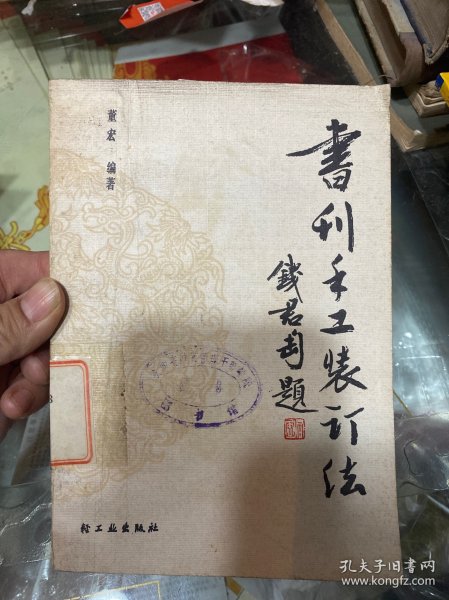 書刊手工装订法
钱君匋题
董宏 编著
轻工业出版社
孔夫子旧书网
www.kongfz.com